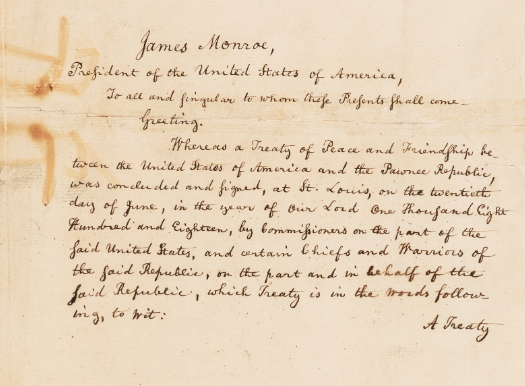 James Monroe,
President of the United States of America,
To all and singular to whom these Presents shall come
Greeting.
Whereas a Treaty of Peace and Friendship be-
tween the United States of America and the Pawnee Republic,
was concluded and signed, at St. Louis, on the twentieth
day of June, in the year of Our Lord One Thousand Eight
Hundred and Eighteen, by Commissioners on the part of the
said United States, and certain Chiefs and Warriors of
the said Republic, on the part and in behalf of the
said Republic, which Treaty is in the words follow
ing, to wit:
A Treaty